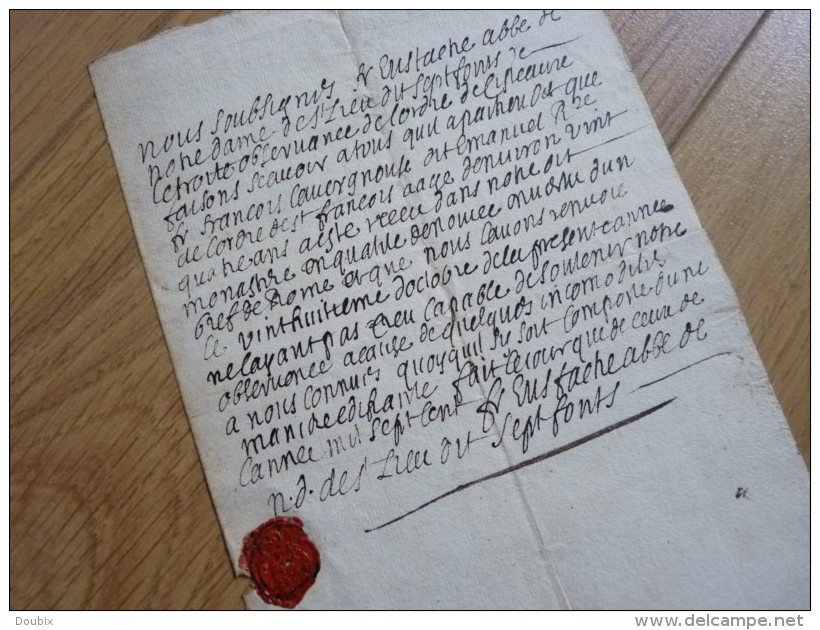 nous soubsignés fr Eustache abbé de
notre dame de st Lieu dit sept fonts de
letroite observance de lordre de Cisteaux
faisons scavoir a tous quil apartiendra que
fr francois Lauvergnouse dit Emanuel
de lordre de st francois aagé denviron vint
quatre ans a esté receu dans notre dit
monastre en qualité de novice en vertu dun
bref de Rome et que nous lavons renvoié
le vinthuitieme doctobre de la presente année
ne layant pas creu capable de soutenir notre
observance a cause de quelques incomodités
a nous connues quoyquil se soit comporté dune
maniere edifiante fait le jour que de ceux de
lannée mil sept cent fr Eustache abbé de
n. d. de st Lieu dit sept fonts
Doubix
www.delcampe.net